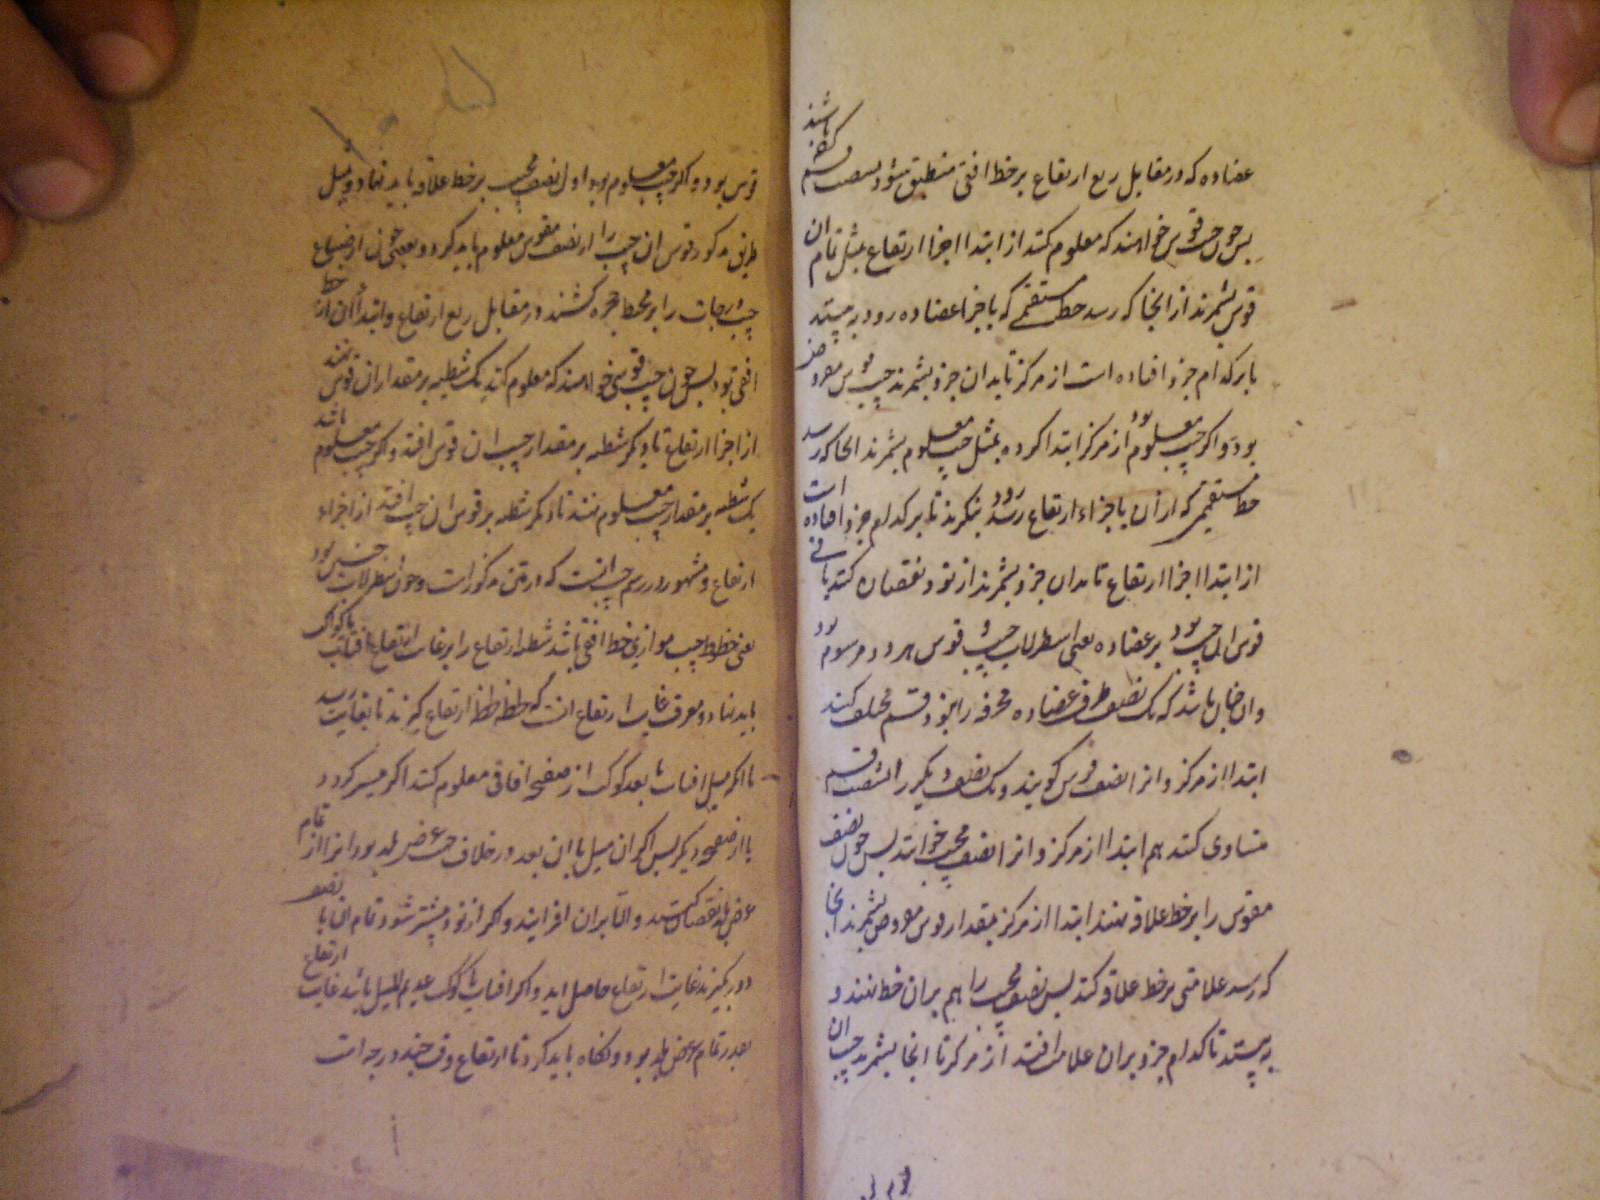 عضاده که در مقابل ربع ارتفاع بر خط افقی منطبق شود بشصت قسم کرده باشند
پس چون جیب قوس خواهند که معلوم کنند از ابتدا اجزا ارتفاع بمثل تمام ان
قوس بشمرند از انجا که رسد خط مستقیمی که با جزا عضاده رود به بینند
تا بر کدام جزو افتاده است از مرکز تا بدان جزو بشمرند جیب قوس مفروض
بود و اگر جیب معلوم بود از مرکز ابتدا کرده بمثل جیب معلوم بشمرند انجا که رسد
خط مستقیمی که از ان با جزاء ارتفاع رود بنگرند تا بر کدام جزو افتاده است
از ابتدا اجزا ارتفاع تا بدان جزو بشمرند از نود نقصان کنند باقی
قوس ان جیب بود بر عضاده یعنی اسطرلاب جیب و قوس هر دو مرسوم بود
و ان چنان باشد که یک نصف طرف عضاده محرفه را بنود قسم مختلف کنند
ابتدا از مرکز و انرا نصف قوس گویند و یک نصف دیگر را بشصت قسم
متساوی کنند هم ابتدا از مرکز و انرا نصف مجیب خوانند پس چون نصف
مقوس را بر خط علاقه نهند ابتدا از مرکز بمقدار قوس مفروض بشمرند انجا
که رسد علامتی بر خط علاقه کنند پس نصف مجیب را هم بران خط نهند و
به بینند تا کدام جزو بران علامت افتد از مرکز تا انجا بشمرند جیب ان
قوس بود و اگر جیب معلوم بود اول نصف مجیب بر خط علاقه باید نهاد و بمثل
طریق مذکور قوس ان جیب را از نصف مقوس معلوم باید کرد و بعضی
جیب درجات را بر محیط حجره کشند در مقابل ربع ارتفاع و ابتدا ان از خط
افقی بود پس چون جیب قوسی خواهند که معلوم کنند یک شظیه بر مقدار ان قوس نهند
از اجزا ارتفاع تا دیگر شظیه بر مقدار جیب ان قوس افتد و اگر جیب معلوم باشد
یک شظیه بر مقدار جیب معلوم نهند تا دیگر شظیه بر قوس ان جیب افتد از اجزاء
ارتفاع و مشهور در رسم جیب انست که در متن مذکورست و چون اسطرلاب چنین بود
یعنی خطوط جیب موازی خط افقی باشد شظیه ارتفاع را بر غایت ارتفاع افتاب یا کوکب
باید نهاد و معرفت غایت ارتفاع انست که لحظه لحظه ارتفاع گیرند تا بغایت رسد
یا اگر میل افتاب یا بعد کوکب از صفیحه افاقی معلوم کنند اگر میسر گردد
یا از صفیحه دیگر پس اگر ان میل یا ان بعد در خلاف جهت عرض بلد بود انرا از تمام
عرض بلد نقصان کنند و الا بران افزایند و اگر از نود بیشتر شود تمام ان تا نصف
دور گیرند غایت ارتفاع حاصل اید و اگر افتاب یا کوکب عدیم المیل باشد غایت ارتفاع
بقدر تمام عرض بلد بود و نگاه باید کرد تا ارتفاع وقت چند درجه است